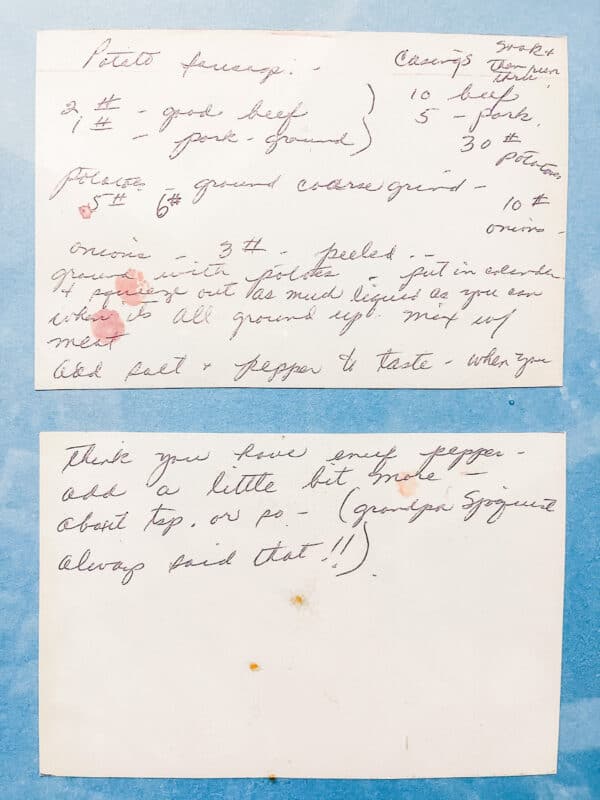 Potato Sausage: -
Casings soak +
then run
thru
2 # - good beef
1 # - pork - ground
10 beef
5 - pork.
30 #
potatoes
potatoes - ground coarse grind -
5 # 6 #
10 #
onions -
onions - 3 # - peeled - -
ground with potatoes - put in colander
+ squeeze out as much liquid as you can
when its all ground up. mix w/
meat
add salt + pepper to taste - when you
think you have enuf pepper -
add a little bit more -
about tsp. or so - (grandpa Sjoquist
always said that!!)